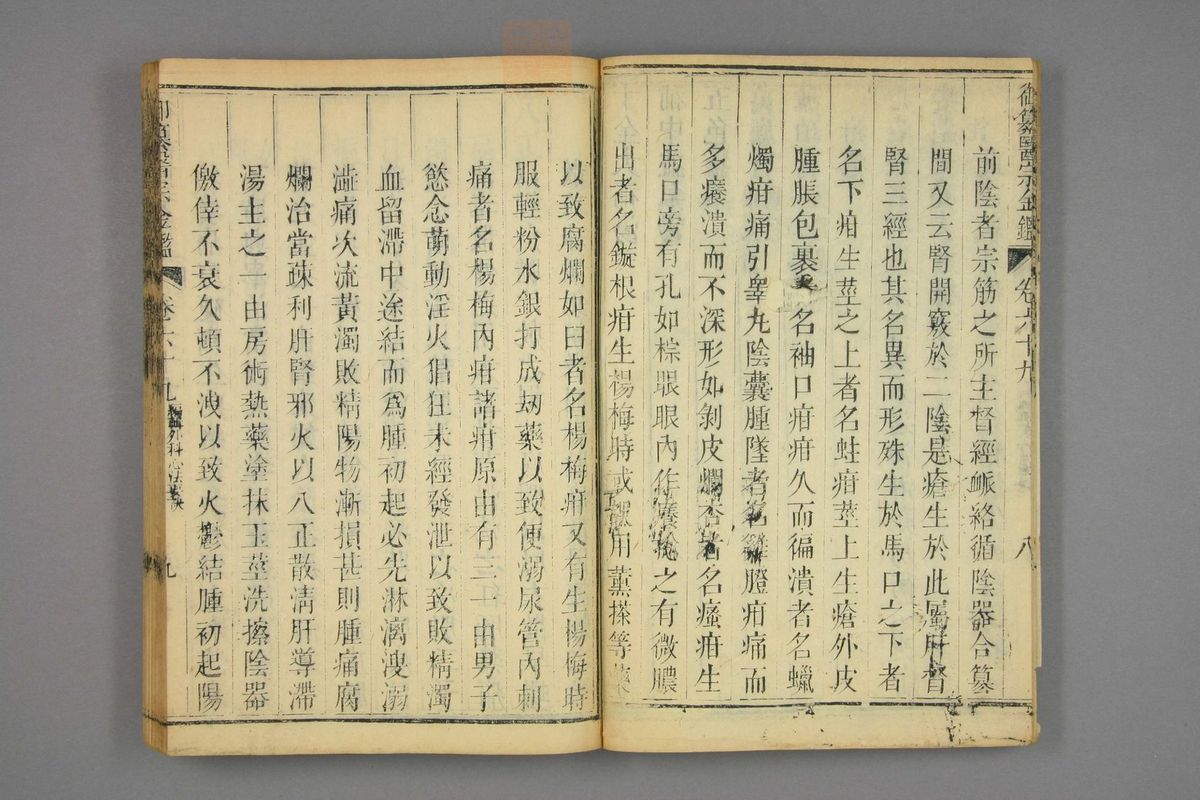 御纂醫宗金鑑 卷六十九 八
前陰者宗筋之所主督經脈絡循陰器合篡
間又云腎開竅於二陰是瘡生於此屬肝督
腎三經也其名異而形殊生於馬口之下者
名下疳生莖之上者名蛀疳莖上生瘡外皮
腫脹包裹 名袖口疳疳久而徧潰者名蠟
燭疳痛引睾丸陰囊腫墜者名 疳痛而
多癢潰而不深形如剝皮爛杏者名瘙疳生
馬口旁有孔如棕眼眼內作癢 之有微膿
出者名鏇根疳生楊梅時或 用薰搽等藥
以致腐爛如臼者名楊梅疳又有生楊梅時
服輕粉水銀打成刼藥以致便溺尿管內刺
痛者名楊梅內疳諸疳原由有三一由男子
慾念萌動淫火猖狂未經發泄以致敗精濁
血留滯中途結而爲腫初起必先淋漓溲溺
澁痛次流黃濁敗精陽物漸損甚則腫痛腐
爛治當疎利肝腎邪火以八正散淸肝導滯
湯主之一由房術熱藥塗抹玉莖洗擦陰器
僥倖不衰久頓不洩以致火鬱結腫初起陽
御纂醫宗金鑑 卷六十九 編輯外科心法要訣 九